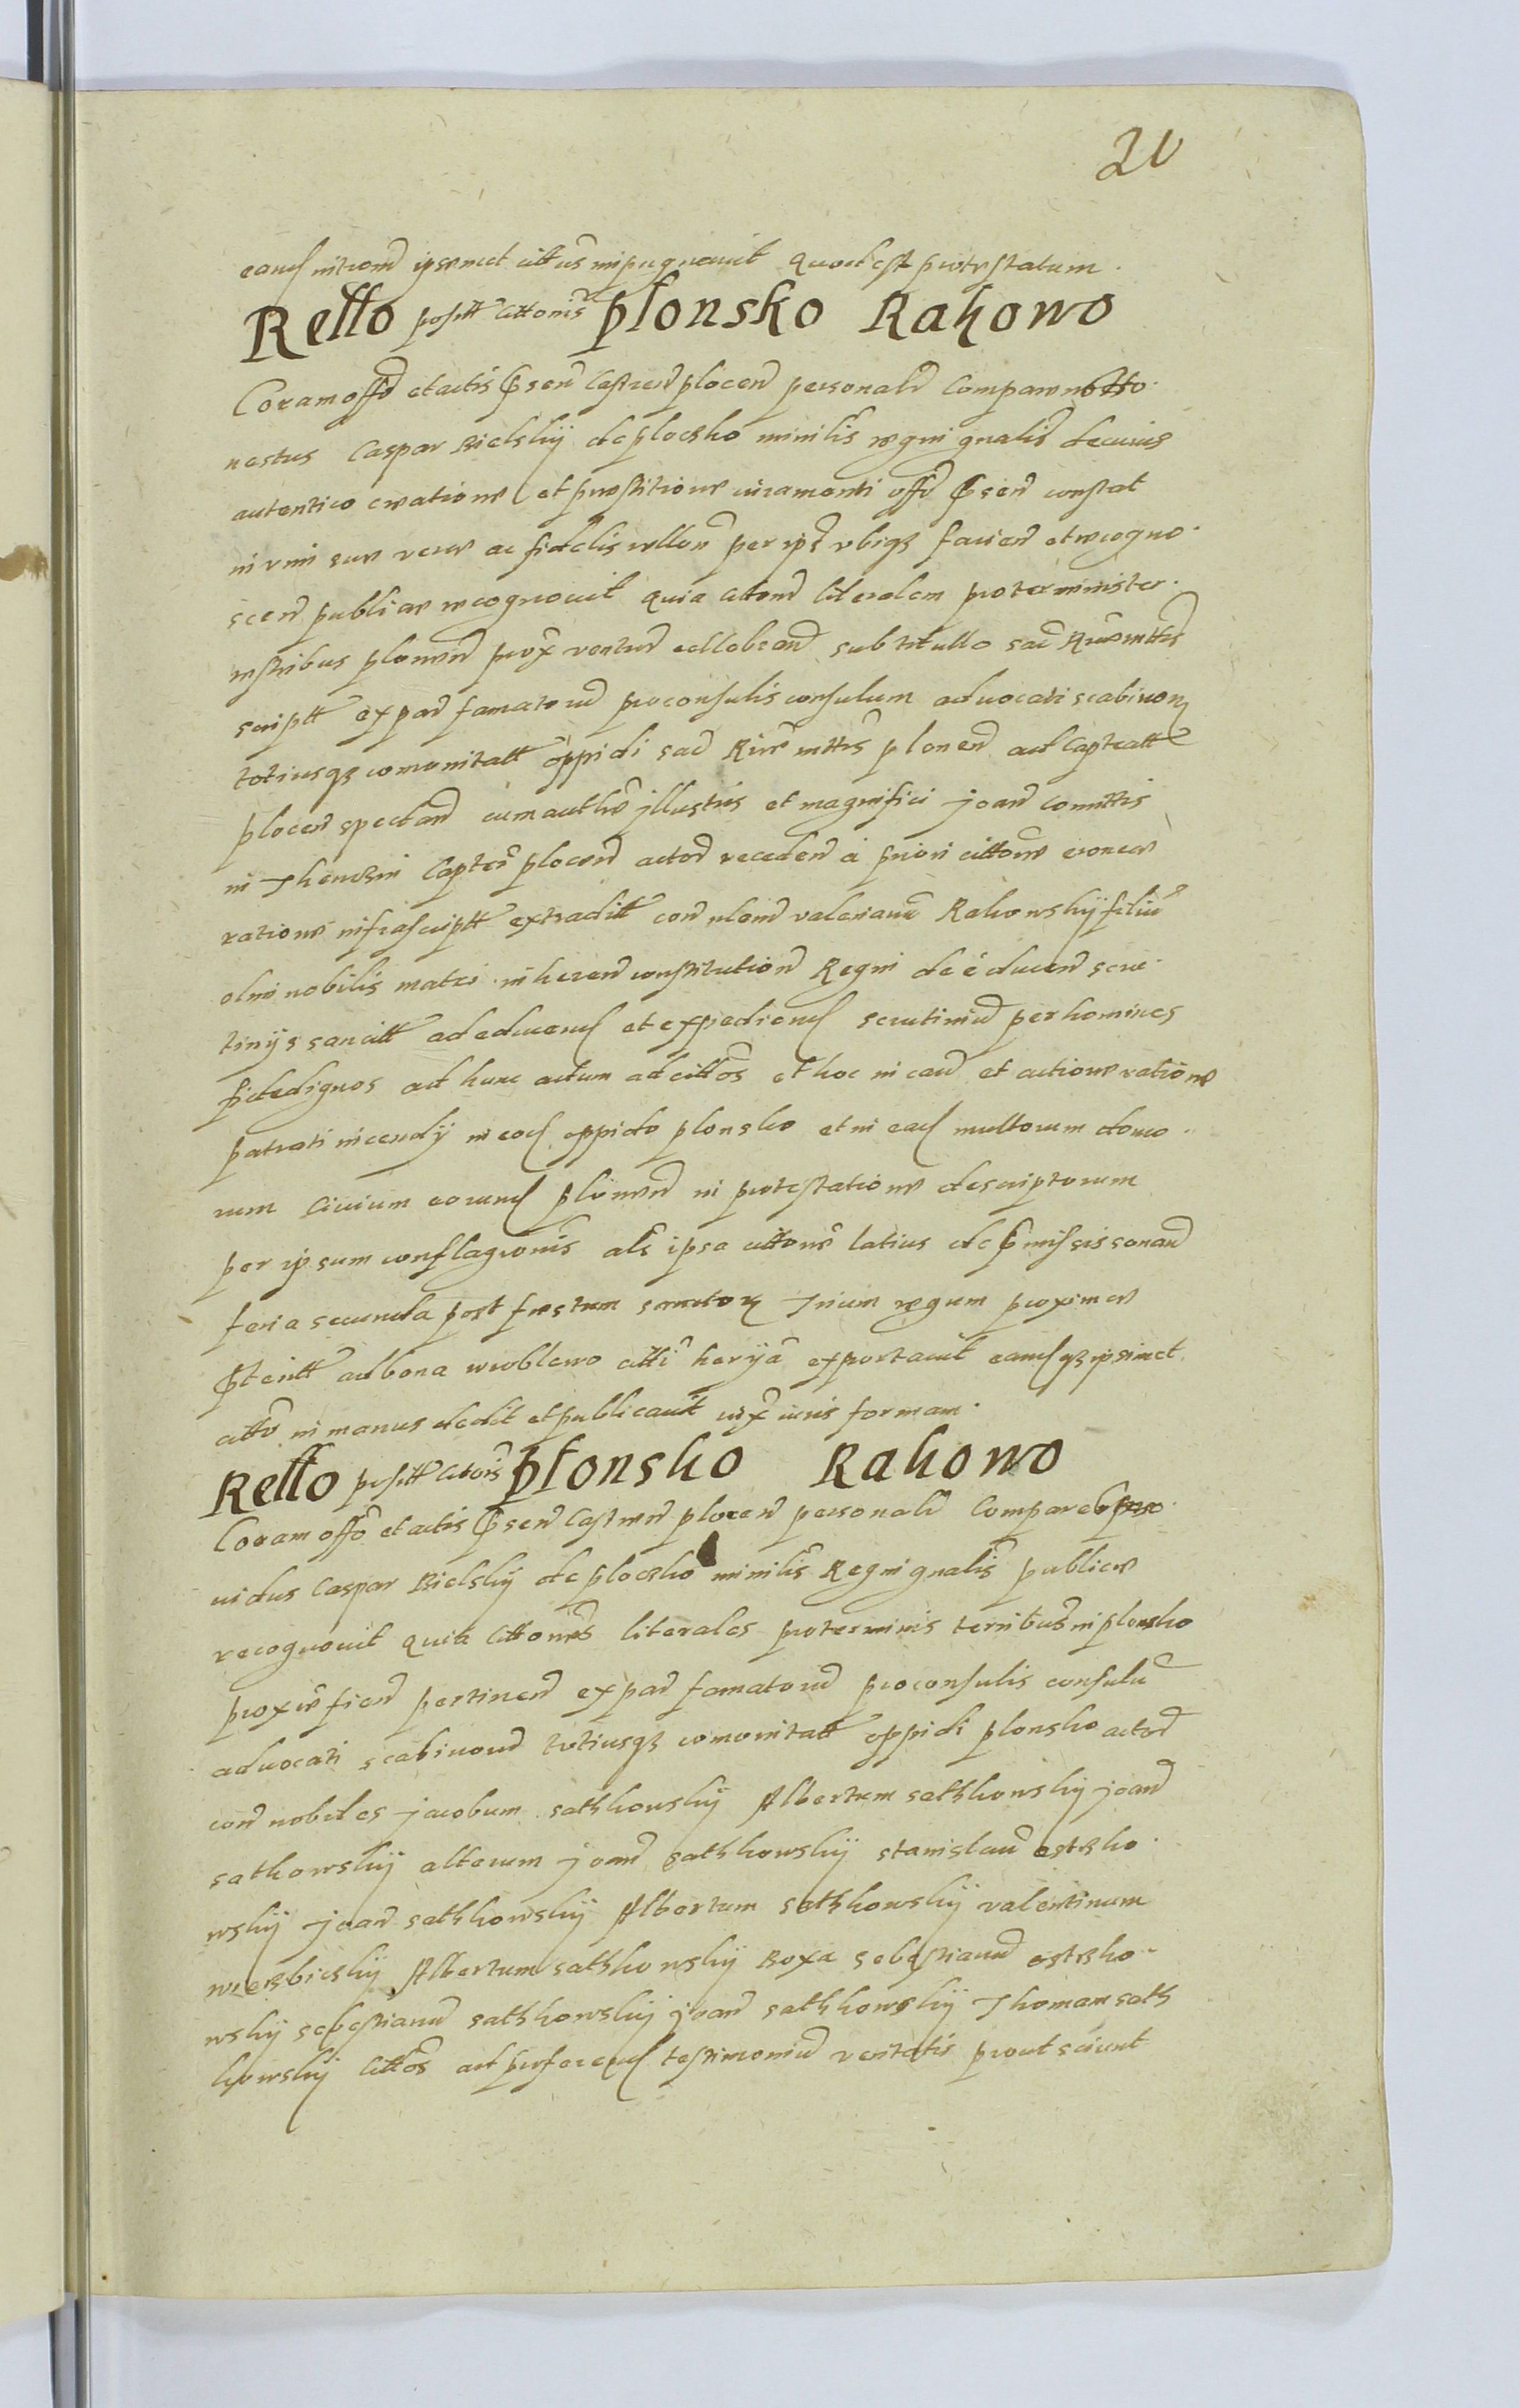 20
eand nitiond ipsemet citt9 impugnauit Quod est protestatum.
Rello positt Cittonis plonsko Rakowo
Coram offo et actis psen Castren plocen personalr Comparen Ho
nestus Caspar Bielskij de plocsko minilis regni gnalis de cuius
autentico creatione et prestitione iuramenti offo psen constat
in vim sue vere ac fidelis rellonis per ips vbiq3 facien et recogno
scen publice recognouit Quia cittonem literalem pro terminis ter
restribus plonen prox ventur cellebrand sub titullo sac Rize mttis
scriptt ex par famatorum proconsulis consulum aduocati scabinorum
totiusq3 comonitatt oppidi sac Rize mttis plonen ad Capteatt
plocen spectan cum authe jllustris et magnifici joan comittis
in Thenczin Captei plocen actor receden a priori cittone erronee
ratione infrascriptt extraditt con nlem valerianum Rakowskij filium
olim nobilis matzi inheren constitution Regni de educen scru
tinijs sancitt ad educend et expediend scrutinium per homines
fidedignos ad hunc actum ad cittos et hoc in cau et actione ratione
patrati incendij in eod oppido plonsko et in ead multorum domo
rum Ciuium eorund plonen in protestatione descriptorum
per ipsum conflagrionis als ipsa cittone latius de pmissis sonan
feria secunda post festum sanctor Trium regum proxime
pteritt ad bona wroblewo citti herija exportauit eandq3 ipsimet
citto in manus dedit et publicauit iux iuris formam.
Rello positt Citois plonsko Rakowo
Coram offo et actis psen Castren plocen personalr Comparen pro
uidus Caspar Bielskij de plocsko minilis Regni gnalis publice
recognouit quia Cittones literales pro terminis terribus in plonsko
proxie fien pertinen ex par famatorum proconsulis consulum
aduocati scabinorum totiusq3 comonitatt oppidi plonsko actor
con nobiles jacobum sathkowskij Albertum sathkowskij joan
sathowskij alterum joan sathkowskij stanislaum ostrko
wskij joan sathkowskij Albertum sathkowskij valentinum
wierzbickij Albertum sathkowskij Boxa sebastianum ostrko
wskij sebastianum sathkowskij joan sathkowskij Thomam sath
kowskij Cittos ad perferend testimonium veritatis prout sciunt